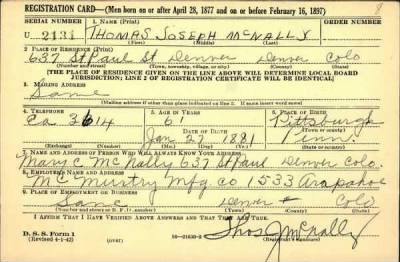 REGISTRATION CARD—(Men born on or after April 28, 1877 and on or before February 16, 1897)
SERIAL NUMBER 1. NAME (Print)
U 2131 THOMAS JOSEPH McNALLY
(First) (Middle) (Last)
2. PLACE OF RESIDENCE (Print)
637 St Paul St Denver Denver Colo
(Number and street) (Town, township, village, or city) (County) (State)
[THE PLACE OF RESIDENCE GIVEN ON THE LINE ABOVE WILL DETERMINE LOCAL BOARD
JURISDICTION; LINE 2 OF REGISTRATION CERTIFICATE WILL BE IDENTICAL]
3. MAILING ADDRESS
Same
[Mailing address if other than place indicated on line 2. If same insert word same]
4. TELEPHONE 5. AGE IN YEARS 6. PLACE OF BIRTH
Ea 3614 61 Pittsburgh
DATE OF BIRTH (Town or county)
Jan 27 1881 Penn.
(Mo.) (Day) (Yr.) (State or country)
7. NAME AND ADDRESS OF PERSON WHO WILL ALWAYS KNOW YOUR ADDRESS
Mary C McNally 637 St Paul Denver Colo.
8. EMPLOYER'S NAME AND ADDRESS
McMurtry Mfg Co 1533 Arapahoe
9. PLACE OF EMPLOYMENT OR BUSINESS
Same Denver Colo
(Number and street or R. F. D. number) (Town) (County) (State)
I AFFIRM THAT I HAVE VERIFIED ABOVE ANSWERS AND THAT THEY ARE TRUE.
D. S. S. Form 1
(Revised 4-1-42) (over) Thos J McNally